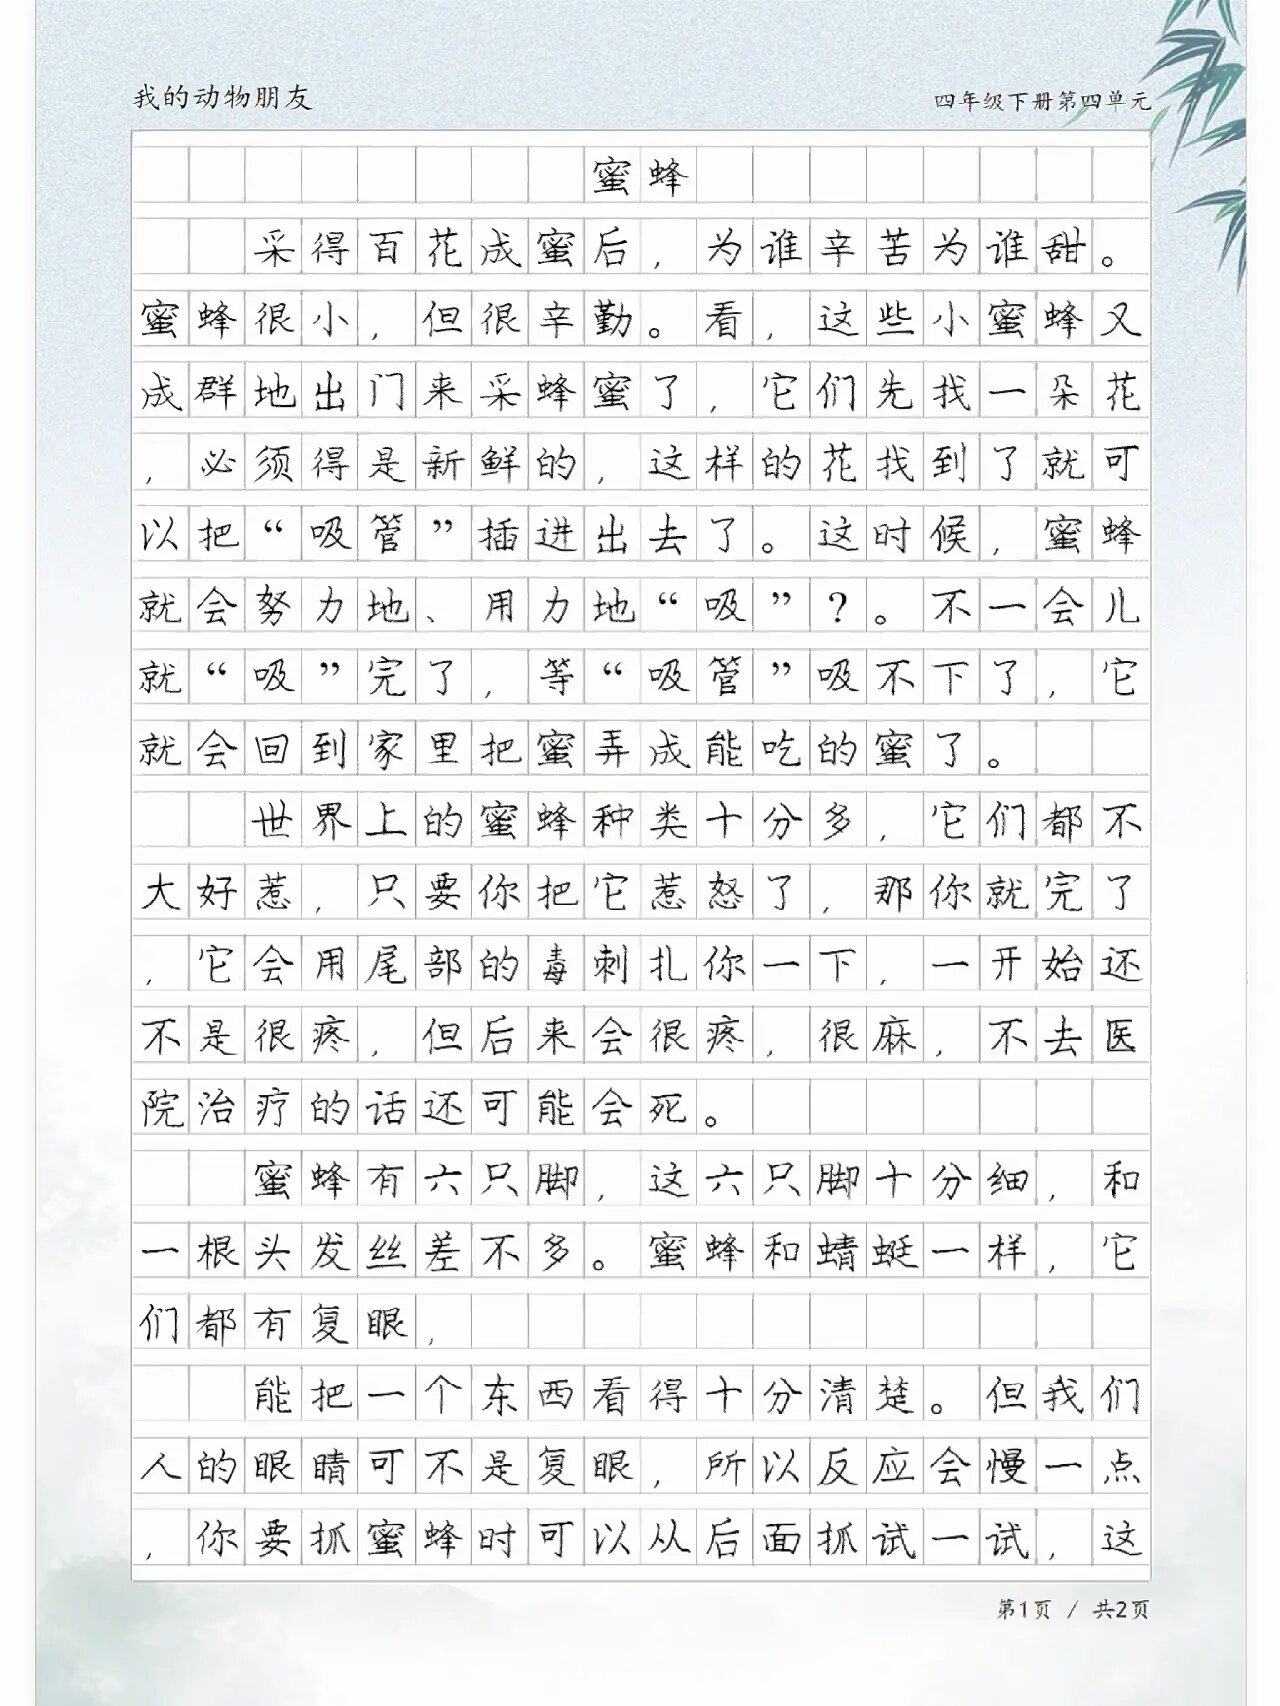 我的动物朋友
四年级下册第四单元
蜜蜂
采得百花成蜜后，为谁辛苦为谁甜。
蜜蜂很小，但很辛勤。看，这些小蜜蜂又
成群地出门来采蜂蜜了，它们先找一朵花
，必须得是新鲜的，这样的花找到了就可
以把“吸管”插进出去了。这时候，蜜蜂
就会努力地、用力地“吸”？。不一会儿
就“吸”完了，等“吸管”吸不下了，它
就会回到家里把蜜弄成能吃的蜜了。
世界上的蜜蜂种类十分多，它们都不
大好惹，只要你把它惹怒了，那你就完了
，它会用尾部的毒刺扎你一下，一开始还
不是很疼，但后来会很疼，很麻，不去医
院治疗的话还可能会死。
蜜蜂有六只脚，这六只脚十分细，和
一根头发丝差不多。蜜蜂和蜻蜓一样，它
们都有复眼，
能把一个东西看得十分清楚。但我们
人的眼睛可不是复眼，所以反应会慢一点
，你要抓蜜蜂时可以从后面抓试一试，这
第1页 / 共2页